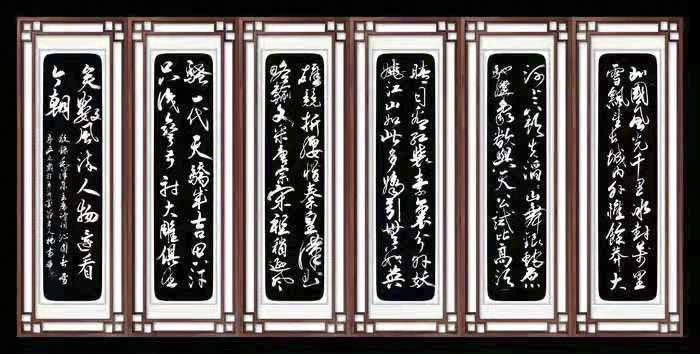 北國風光千里冰封萬里
雪飄望長城內外惟餘莽大
河上下頓失滔滔山舞銀蛇原
馳蠟象欲與天公試比高須
晴日看紅裝素裹分外妖
嬈江山如此多嬌引無數英
雄競折腰惜秦皇漢武
略輸文采唐宗宋祖稍遜風
騷一代天驕成吉思汗
只識彎弓射大雕俱往
矣數風流人物還看
今朝
敬錄毛澤東主席詩詞沁園春雪